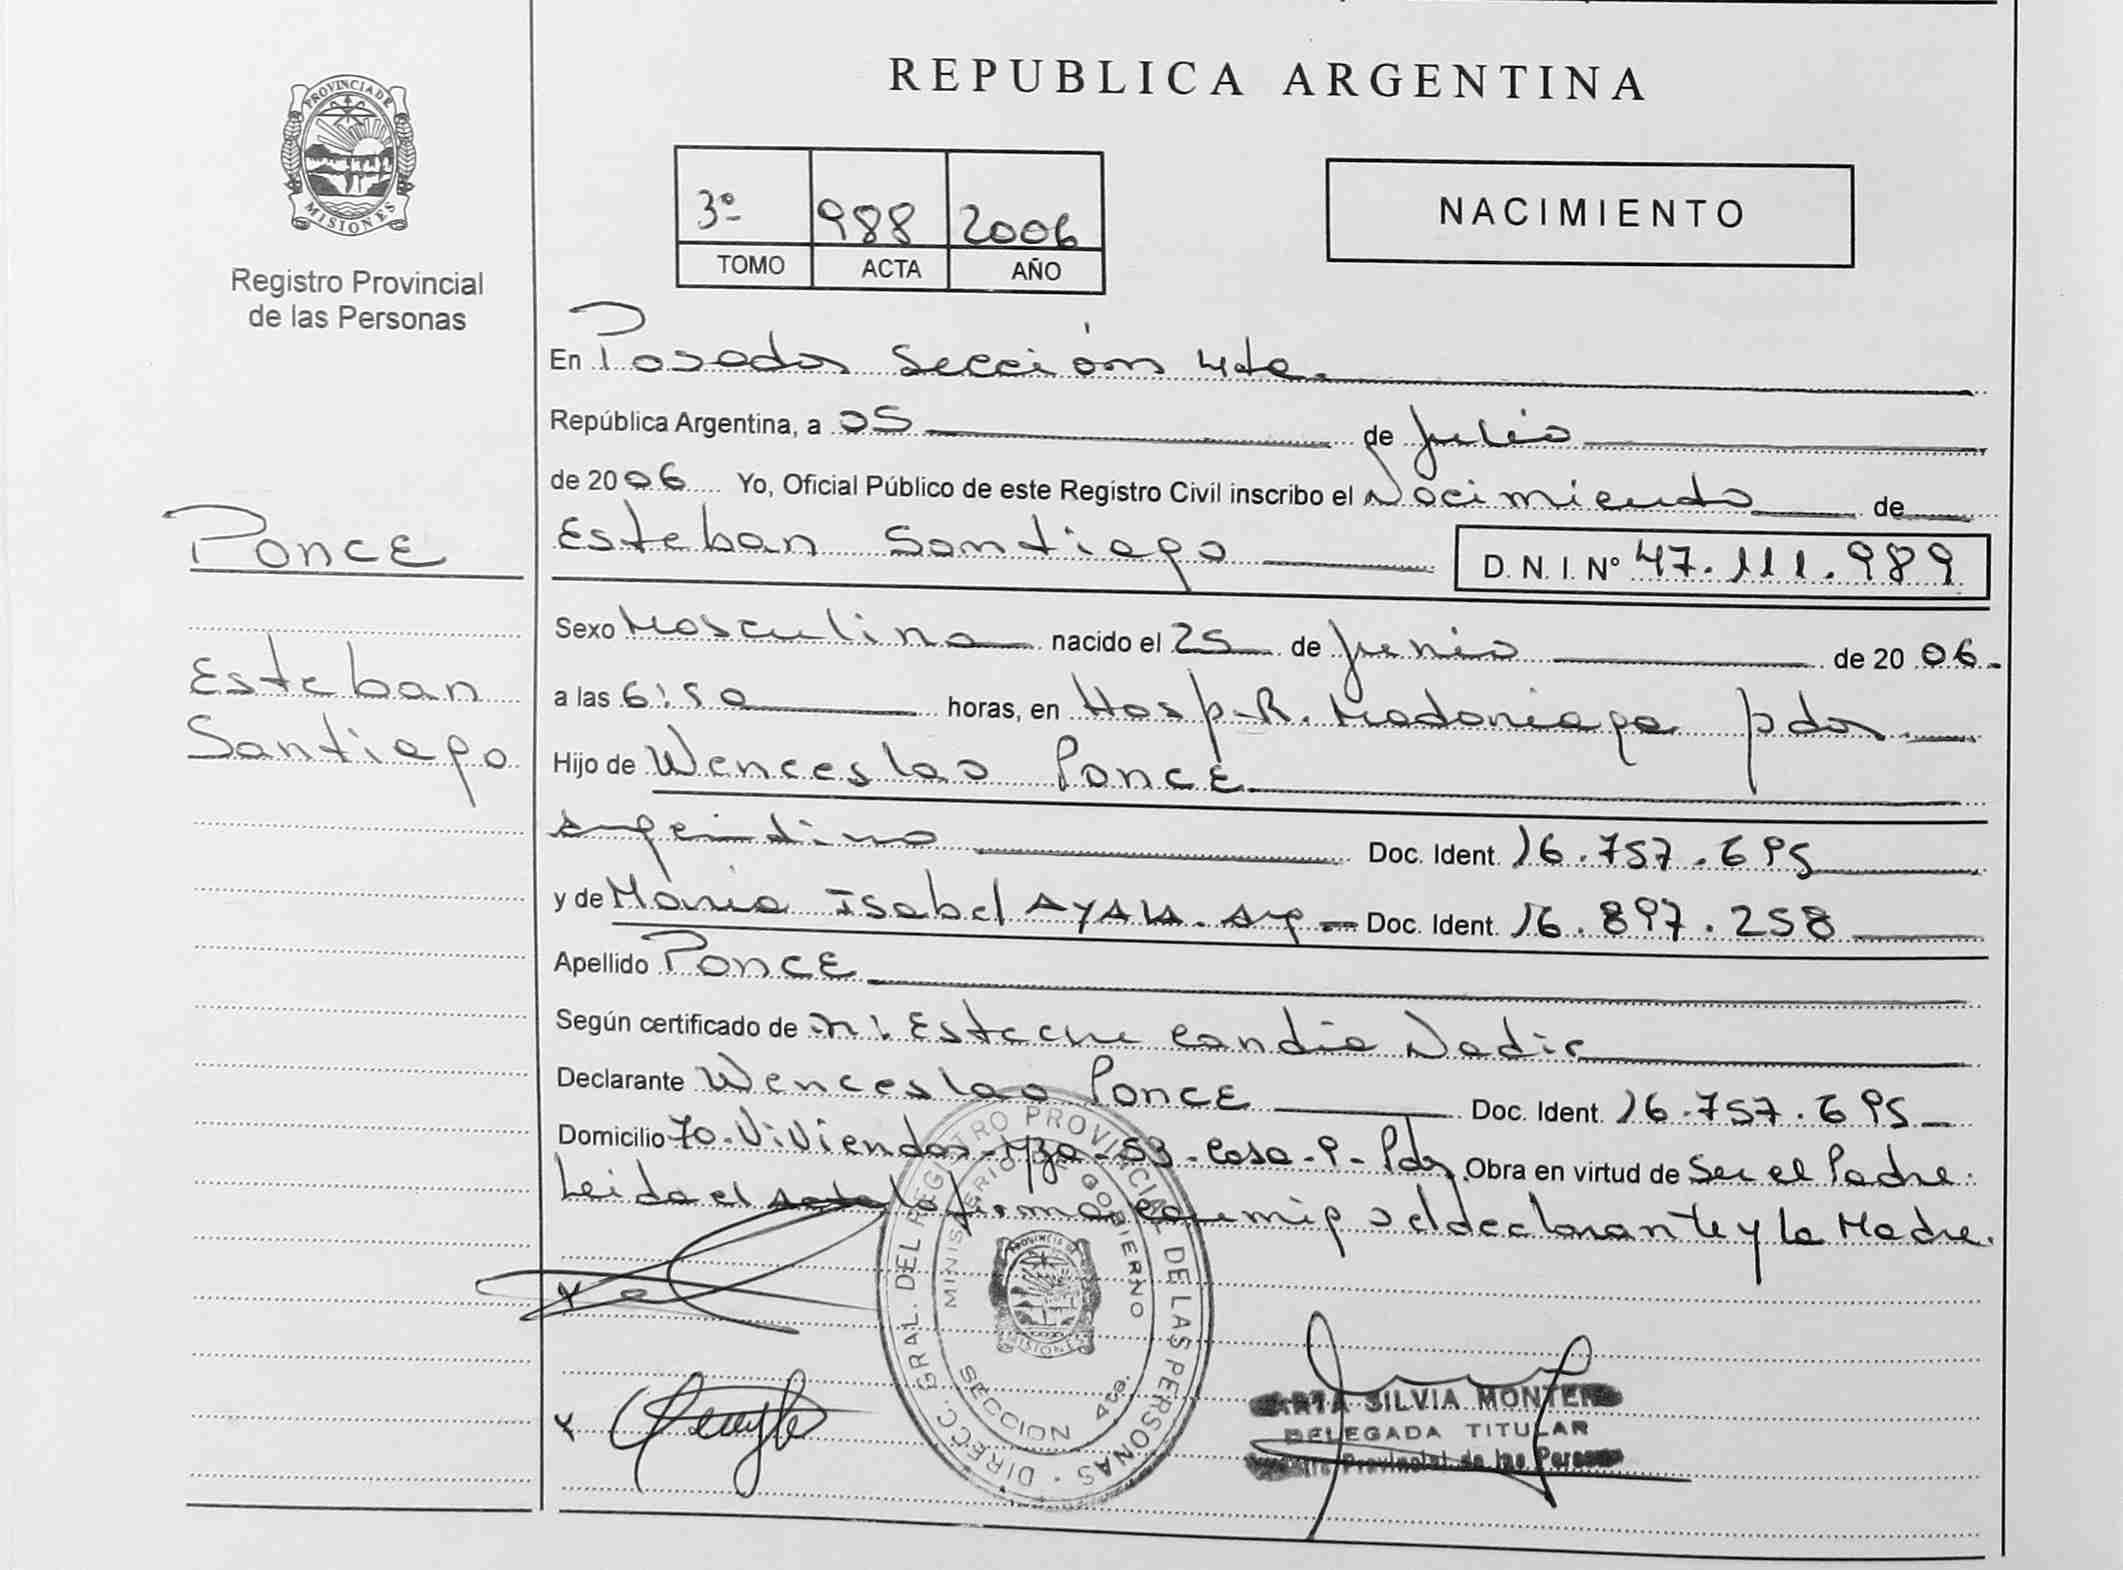 PROVINCIA DE
MISIONES
Registro Provincial
de las Personas
REPUBLICA ARGENTINA
3º 988 2006
TOMO ACTA AÑO
NACIMIENTO
En Posadas Sección 4ta.
República Argentina, a 05 de Julio
de 2006 Yo, Oficial Público de este Registro Civil inscribo el Nacimiento de
Ponce
Esteban Santiago D. N. I. Nº 47.111.989
Sexo Masculino nacido el 25 de Junio de 2006.
Esteban
Santiago
a las 6:50 horas, en Hosp. R. Madariaga Pdas.
Hijo de Wenceslao Ponce
argentino Doc. Ident. 16.757.695
y de Maria Isabel AYALA. Arg Doc. Ident. 16.897.258
Apellido Ponce
Según certificado de Candia Nadia
Declarante Wenceslao Ponce Doc. Ident. 16.757.695
Domicilio 70. Viviendas - Mza - 53 - Casa - 9 - Pdas. Obra en virtud de Ser el Padre.
Leida el acta la firman conmigo el declarante y la Madre.
DIRECC. GRAL. DEL REGISTRO PROVINCIAL DE LAS PERSONAS
MINISTERIO DE GOBIERNO
PROVINCIA DE
MISIONES
SECCION 4ta.
SILVIA MONTERO
DELEGADA TITULAR
Provincial de las Personas